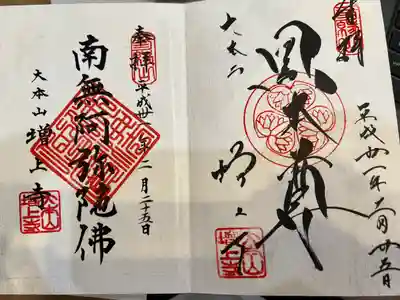 奉拝
黒本尊
大本山
増上寺
平成卅一年二月廿五日
奉拝
平成卅一年二月二十五日
南無阿弥陀佛
大本山
増上寺